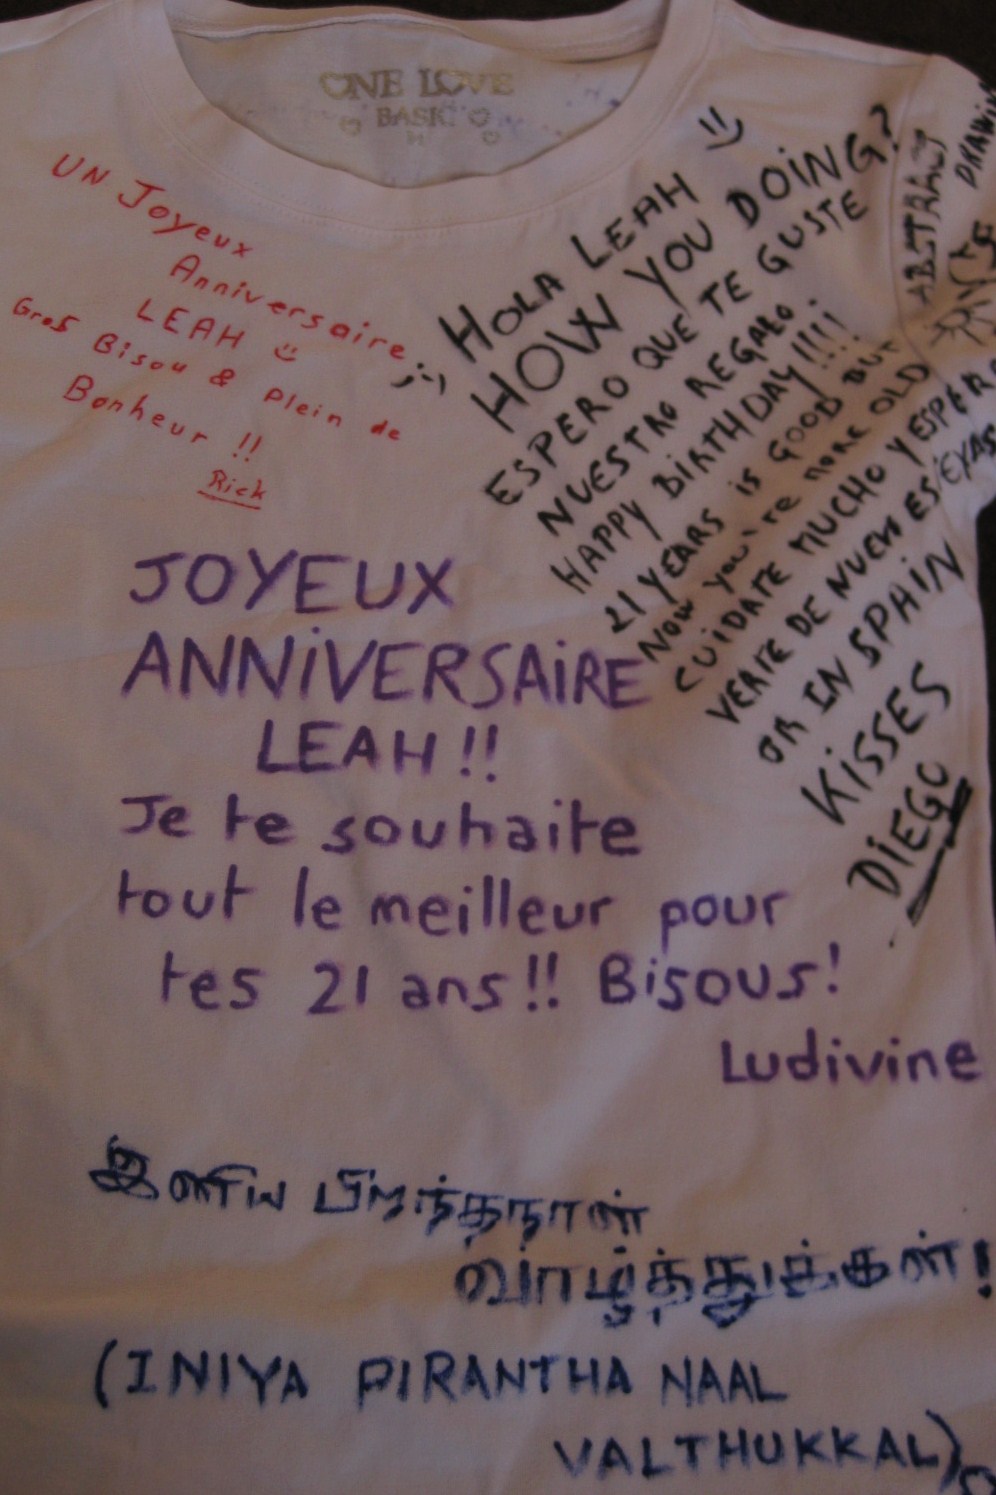 ONE LOVE
BASIC
UN Joyeux
Anniversaire
LEAH
Gros Bisou & Plein de
Bonheur !!
Rick
HOLA LEAH
HOW YOU DOING?
ESPERO QUE TE GUSTE
NUESTRO REGALO.
HAPPY BIRTHDAY!!!!
21 YEARS is GOOD BUT
NOW you're more OLD
CUIDATE MUCHO Y ESPERO
VERTE DE NUEVO EN
OR IN SPAIN
KISSES
DIEGO
ABSTRACT
JOYEUX
ANNIVERSAIRE
LEAH!!
Je te souhaite
tout le meilleur pour
tes 21 ans!! Bisous!
Ludivine
இனிய பிறந்தநாள்
வாழ்த்துக்கள்!
(INIYA PIRANTHA NAAL
VALTHUKKAL)